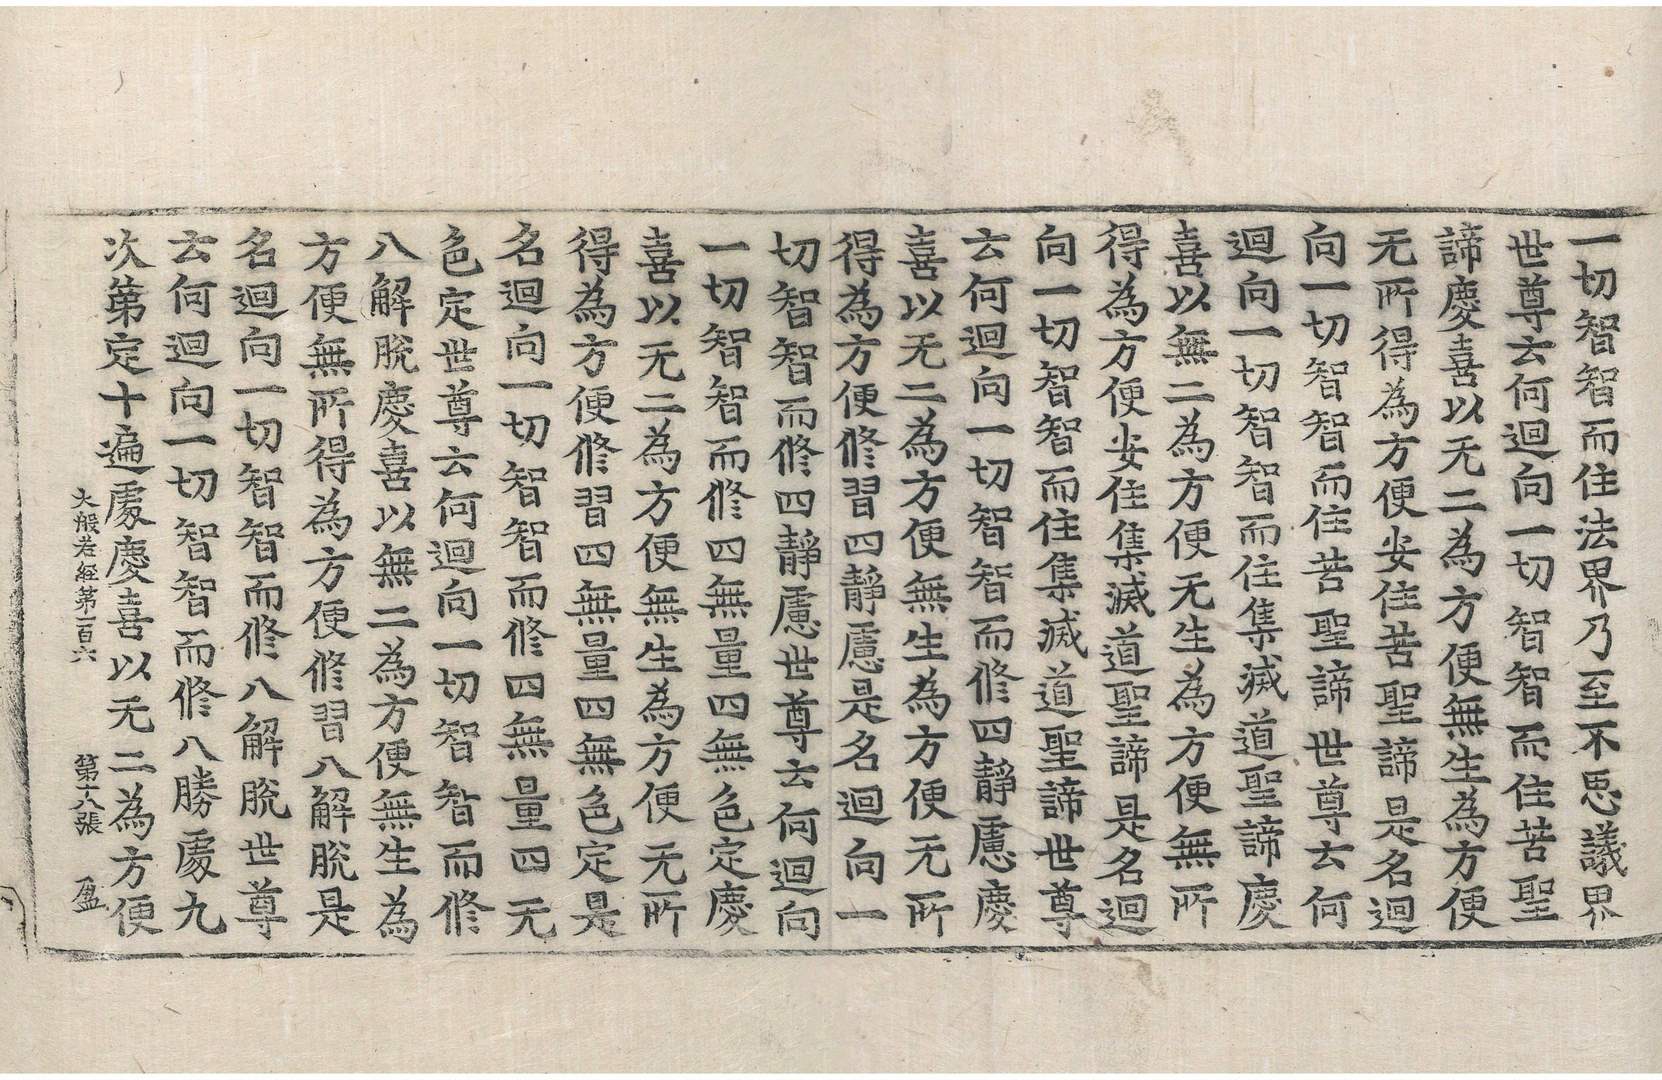 一切智智而住法界乃至不思議界
世尊云何迴向一切智智而住苦聖
諦慶喜以无二為方便無生為方便
无所得為方便安住苦聖諦是名迴
向一切智智而住苦聖諦世尊云何
迴向一切智智而住集滅道聖諦慶
喜以無二為方便无生為方便無所
得為方便安住集滅道聖諦是名迴
向一切智智而住集滅道聖諦世尊
云何迴向一切智智而修四靜慮慶
喜以无二為方便無生為方便无所
得為方便修習四靜慮是名迴向一
切智智而修四靜慮世尊云何迴向
一切智智而修四無量四無色定慶
喜以无二為方便無生為方便无所
得為方便修習四無量四無色定是
名迴向一切智智而修四無量四无
色定世尊云何迴向一切智智而修
八解脫慶喜以無二為方便無生為
方便無所得為方便修習八解脫是
名迴向一切智智而修八解脫世尊
云何迴向一切智智而修八勝處九
次第定十遍處慶喜以无二為方便
大般若經第一百六 第十八張 盈